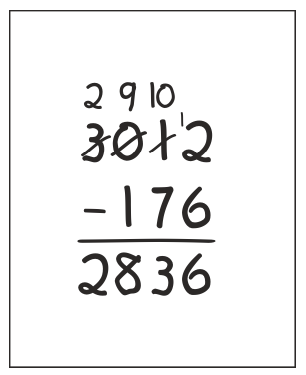 2 9 10
3 0 1 12
- 1 7 6
2 8 3 6